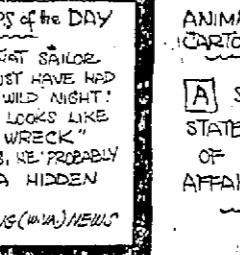 PS of the DAY
AT SAILOR
UST HAVE HAD
WILD NIGHT!
LOOKS LIKE
WRECK"
PROBABLY
A HIDDEN
G (W.VA.) NEWS
ANIMA
CARTO
A S
STATE
OF
AFFAI